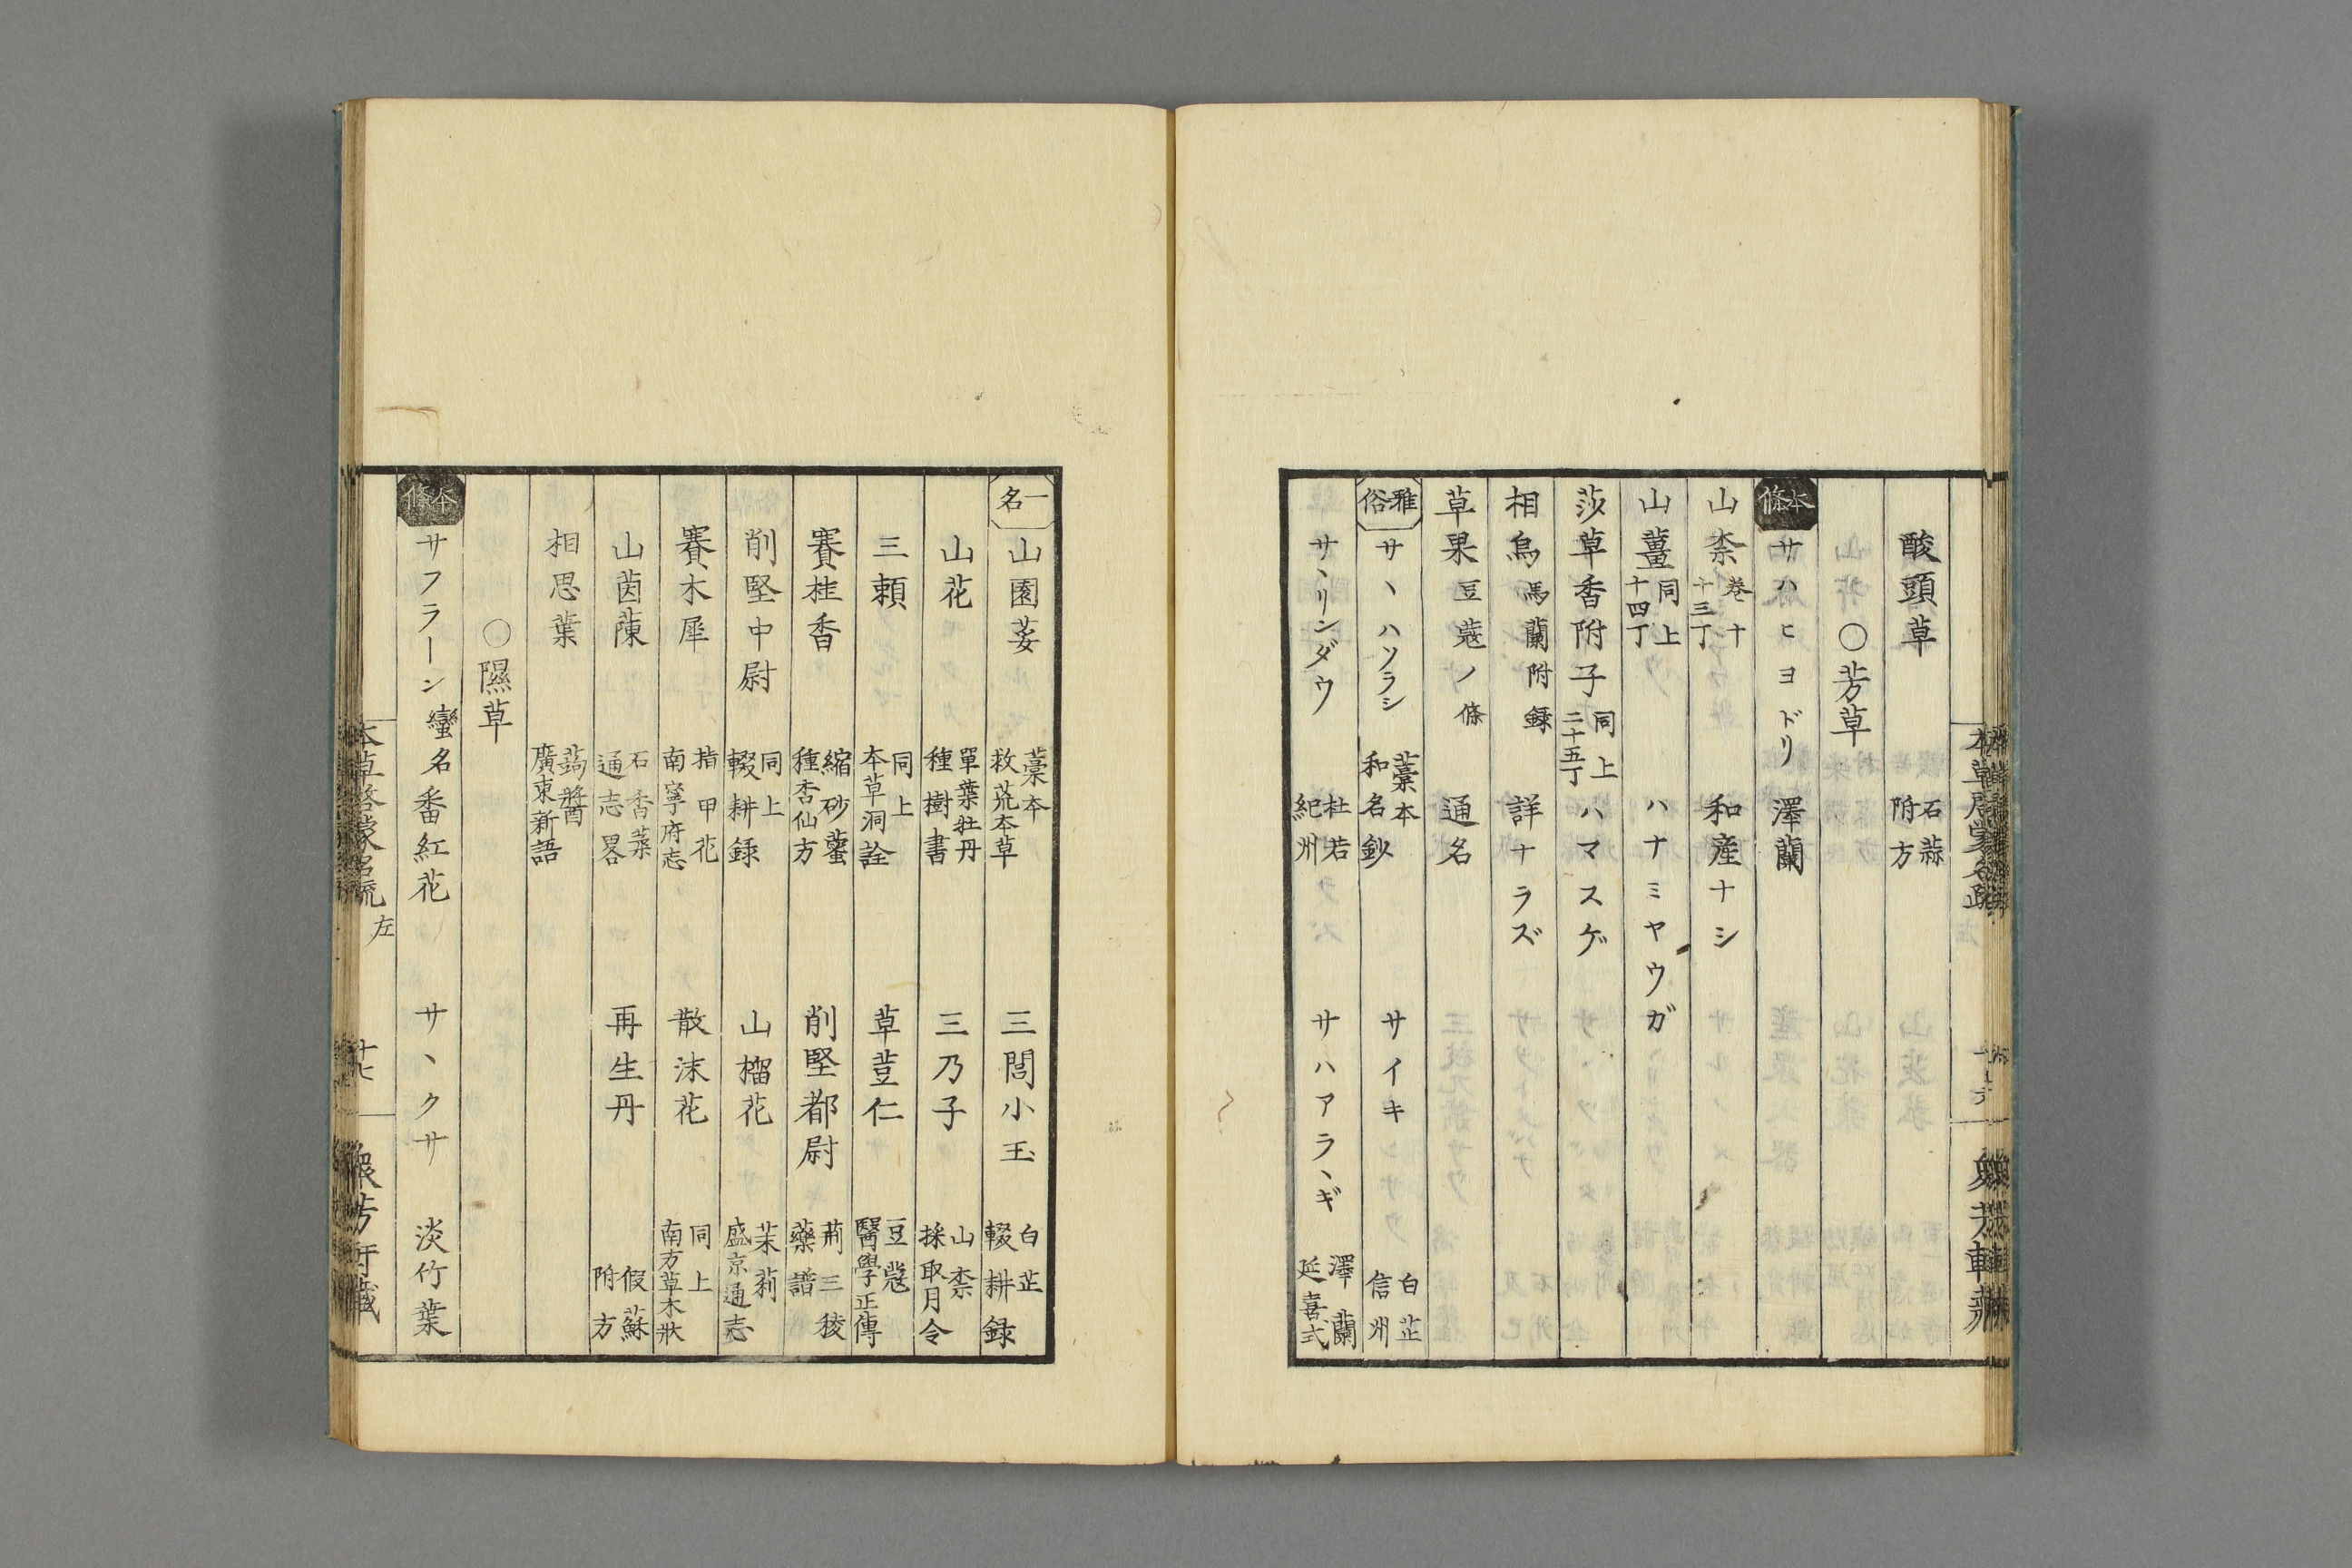 酸頭草 石蒜附方
〇芳草
本條 サハヒヨドリ 澤蘭
山柰 卷十 十三丁 和産ナシ
山薑 同上 十四丁 ハナミヤウガ
莎草香附子 同上 二十五丁 ハマスゲ
相烏 馬蘭附録 詳ナラズ
草果 豆蔲ノ條 通名
雅俗 サヽハソラシ 藁本 和名鈔 サイキ 白芷 信州
サヽリンダウ 杜若 紀州 サハアラヽギ 澤蘭 延喜式
一名 山園荽 藁本 救荒本草 三閭小玉 白芷 輟耕録
山花 單葉牡丹 種樹書 三乃子 山柰 採取月令
三頼 同上 本草洞詮 草荳仁 豆蔲 醫學正傳
賽桂香 縮砂蔤 種杏仙方 削堅都尉 荊三稜 藥譜
削堅中尉 同上 輟耕録 山榴花 茉莉 盛京通志
賽木犀 指甲花 南寧府志 散沫花 同上 南方草木狀
山茵蔯 石香葇 通志畧 再生丹 假蘇 附方
相思葉 蒟醬 廣東新語
〇隰草
本條 サフラーン 蠻名 番紅花 サヽクサ 淡竹葉
本草啓蒙名疏 左 十七 衆芳軒藏